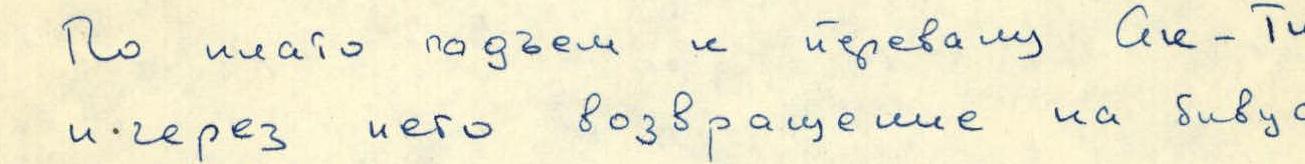 По плато подъем к перевалу Ак-
и через него возвращение на